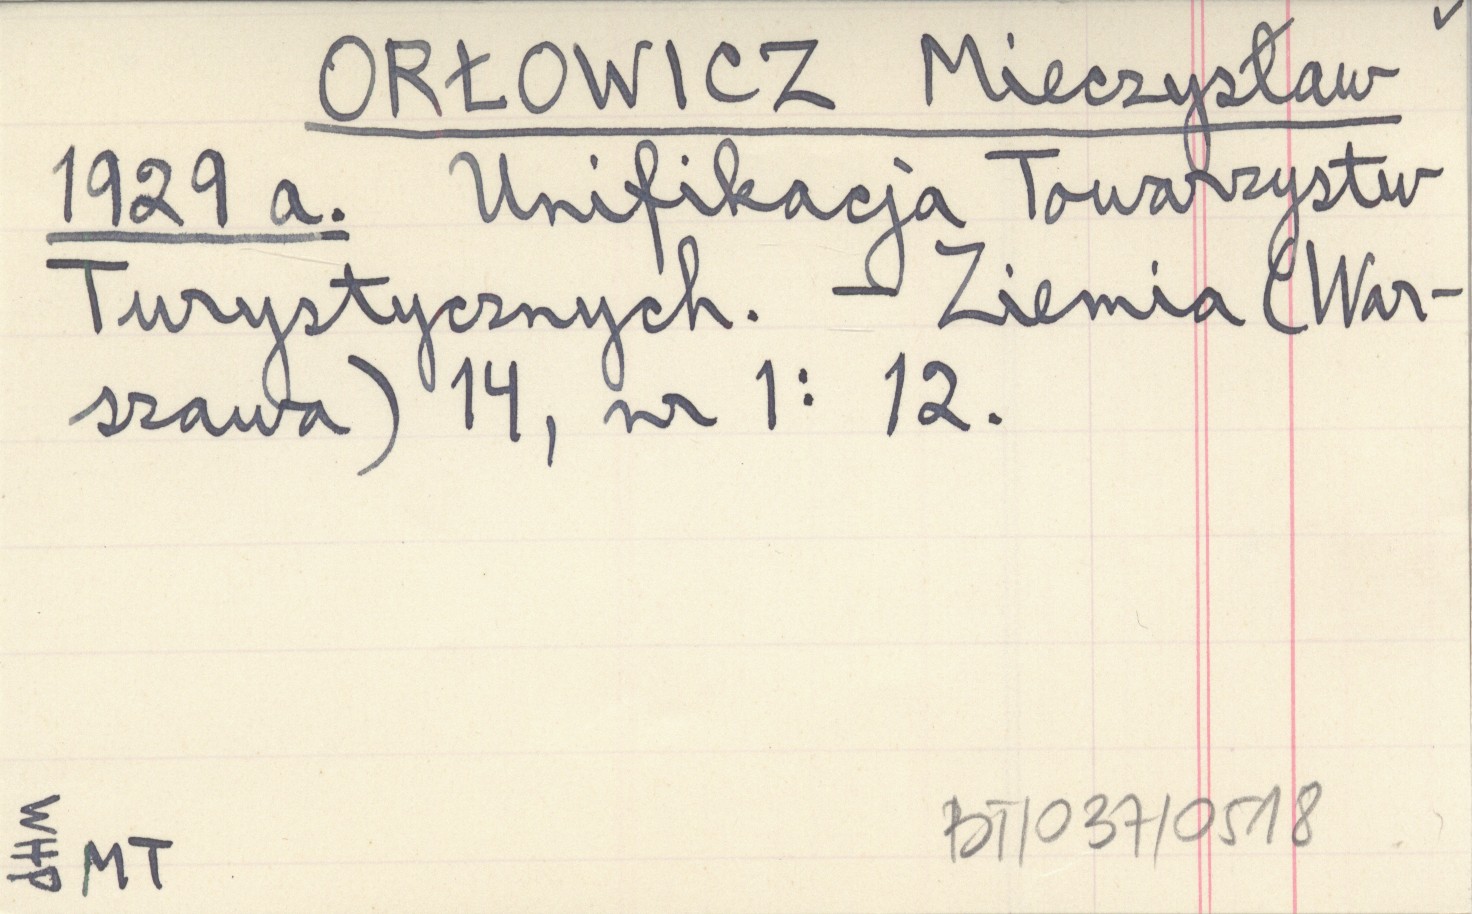 ORŁOWICZ Mieczysław
1929 a. Unifikacja Towarzystw
Turystycznych. – Ziemia (War-
szawa) 14, nr 1: 12.
WHP
MT
BT/037/0518